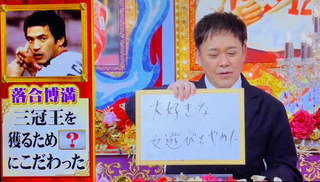 落合博満
三冠王を
獲るため ?
にこだわった
大好きな
女遊びをやめた